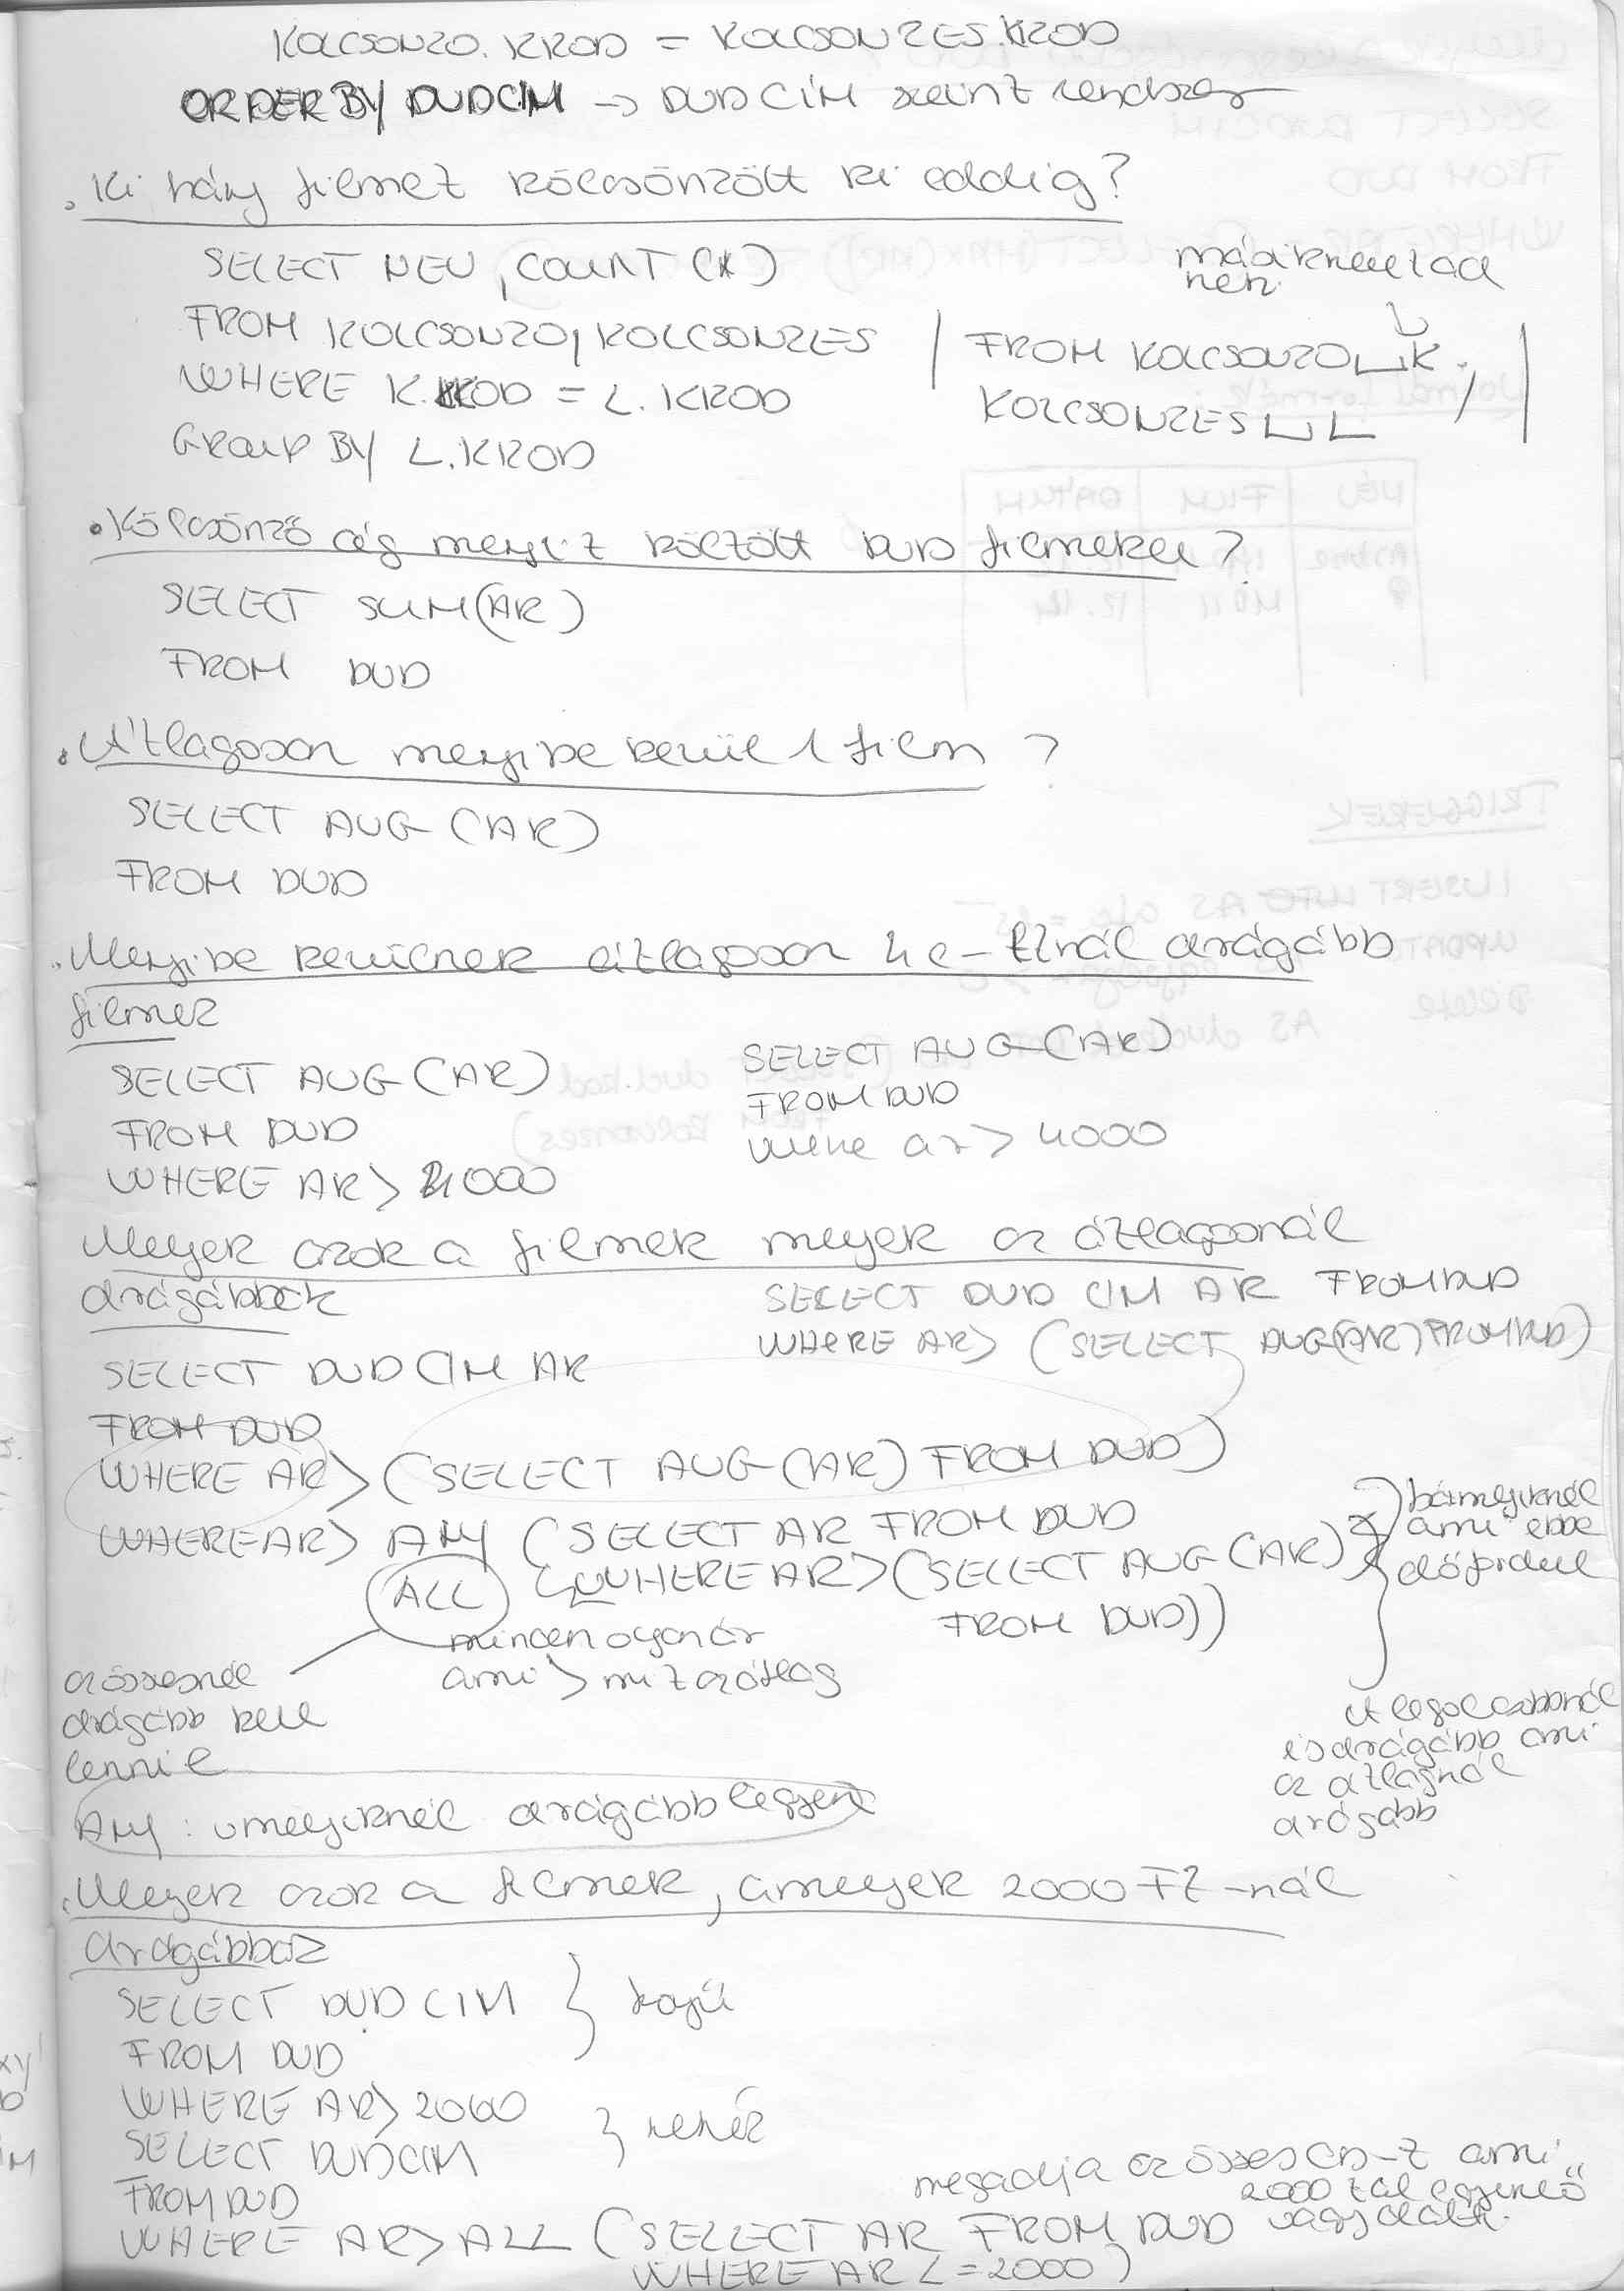 KOLCSONZO.KKOD = KOLCSONZES.KKOD
ORDER BY DVDCIM → DVDCIM szerint rendszer
. Ki hány filmet kölcsönzött ki eddig?
SELECT NEV, COUNT (*)
FROM KOLCSONZO, KOLCSONZES
WHERE K.KKOD = L.KKOD
GROUP BY L.KKOD
FROM KOLCSONZO␣K,
KOLCSONZES␣L
• Kölcsönző cég mennyit költött DVD filmekre?
SELECT SUM(AR)
FROM DVD
. Átlagosan mennyibe kerül 1 film ?
SELECT AVG (AR)
FROM DVD
. Mennyibe kerülnek átlagosan 4e-ftnál drágább
filmek
SELECT AVG (AR)
FROM DVD
WHERE AR > 4000
SELECT AVG (AR)
FROM DVD
where ar > 4000
Melyek azok a filmek melyek az átlagosnál
drágábbak
SELECT DVD CIM AR FROM DVD
WHERE AR > (SELECT AVG(AR) FROM DVD)
SELECT DVD CIM AR
FROM DVD
WHERE AR > (SELECT AVG (AR) FROM DVD)
WHERE AR > ANY (SELECT AR FROM DVD
ALL WHERE AR > (SELECT AVG (AR)
FROM DVD))
bármelyiknél
ami ebbe
előfordul
minden olyan ár
ami > mint az átlag
az összesnél
drágább kell
lennie
A legolcsóbbnál
is drágább ami
az átlagnál
drágább
ANY : valamelyiknél drágább legyen
. Melyek azok a filmek, amelyek 2000 Ft-nál
drágábbak
SELECT DVD CIM
FROM DVD
WHERE AR > 2000
SELECT DVDCIM
FROM DVD
WHERE AR > ALL (SELECT AR FROM DVD
WHERE AR <= 2000)
nehéz
megadja az összes CD-t ami
2000 tól egyenlő